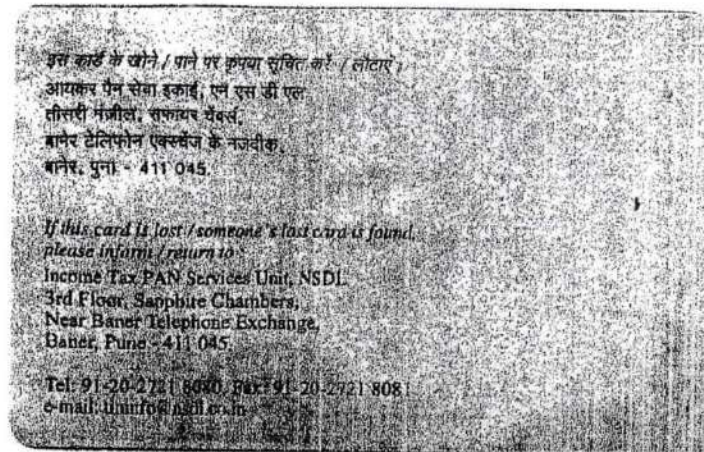 इस कार्ड के खोने / पाने पर कृपया सूचित करें / लौटाएं :
आयकर पैन सेवा इकाई, एन एस डी एल
तीसरी मंज़ील, सफायर चेंबर्स,
बानेर टेलिफोन एक्स्चेंज के नजदीक,
बानेर, पुना - 411 045.
If this card is lost / someone's lost card is found,
please inform / return to :
Income Tax PAN Services Unit, NSDL
3rd Floor, Sapphire Chambers,
Near Baner Telephone Exchange,
Baner, Pune - 411 045
Tel: 91-20-2721 8080, Fax: 91-20-2721 8081
e-mail: tininfo@nsdl.co.in